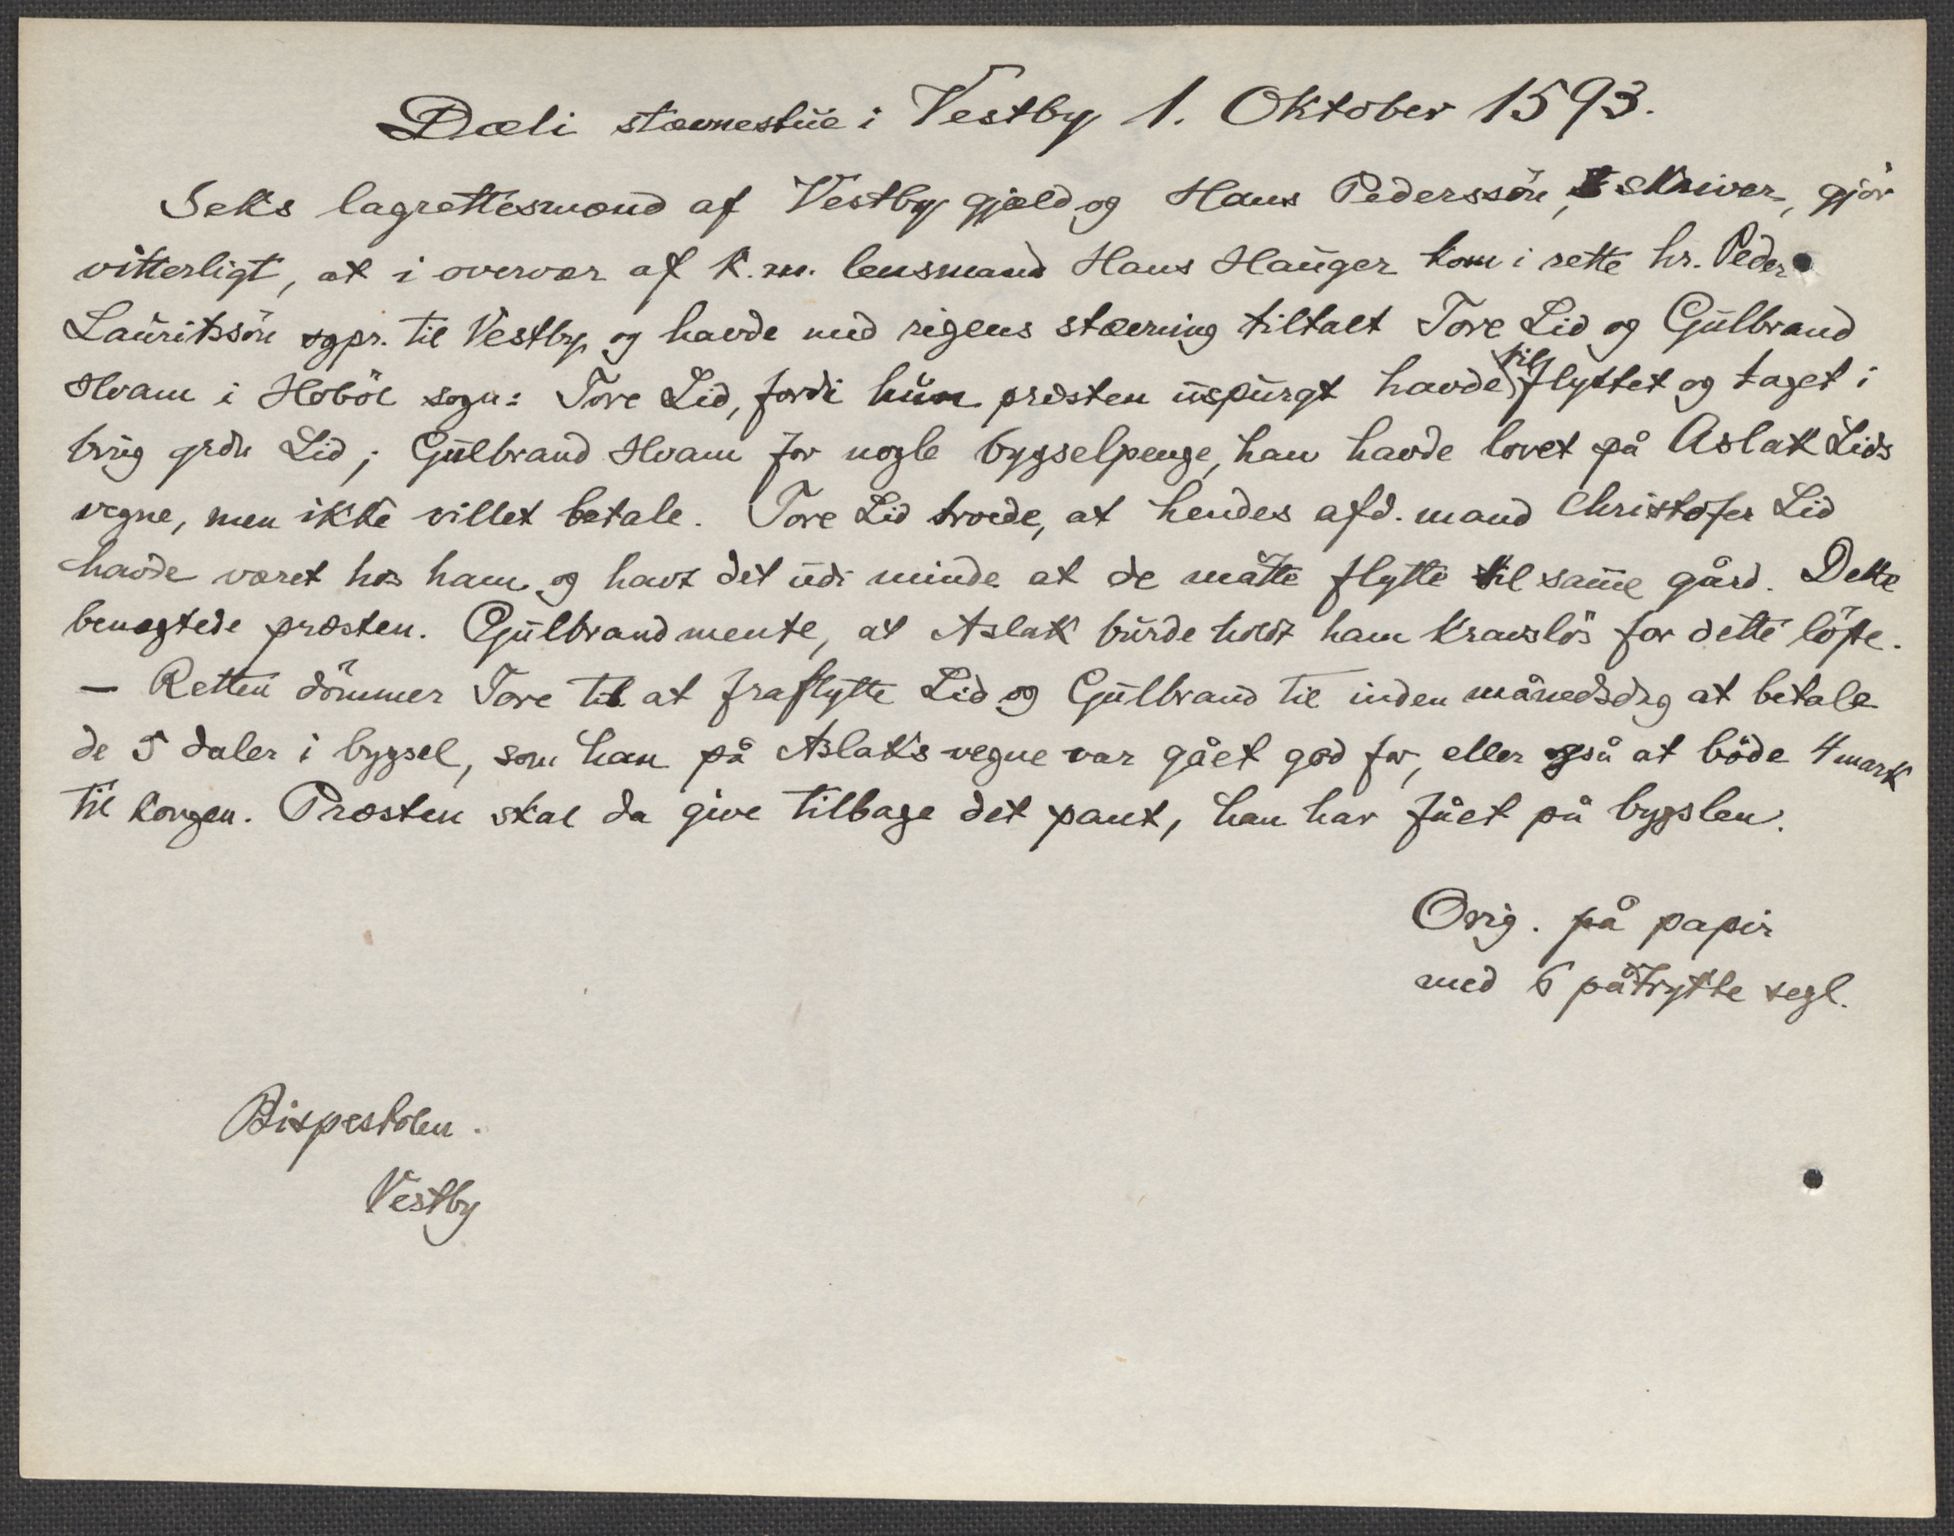 Dæli stævnestue i Vestby 1. Oktober 1593.
Seks lagrettesmænd af Vestby gjæld og Hans Pederssön, skriver, gjör
vitterligt, at i overvær af k. m. lensmand Hans Hauger kom i rette hr. Peder
Lauritssön sgpr. til Vestby og havde med rigens stævning tiltalt Tore Lid og Gulbrand
Hvam i Hoböl sogn: Tore Lid, fordi hun præsten uspurgt havde tilflyttet og taget i
brug grdn Lid; Gulbrand Hvam for nogle bygselpenge, han havde lovet på Aslak Lids
vegne, men ikke villet betale. Tore Lid troede, at hendes afd. mand Christofer Lid
havde været hos ham og havt det udi minde at de måtte flytte til samme gård. Dette
benægtede præsten. Gulbrand mente, at Aslak burde holdt ham kravslös for dette löfte.
— Retten dömmer Tore til at fraflytte Lid og Gulbrand til inden månedsdag at betale
de 5 daler i bygsel, som han på Aslaks vegne var gået god for, eller også at böde 4 mark
til kongen. Præsten skal da give tilbage det pant, han har fået på bygslen.
Orig. på papir
med 6 påtrykte segl.
Bispestolen.
Vestby